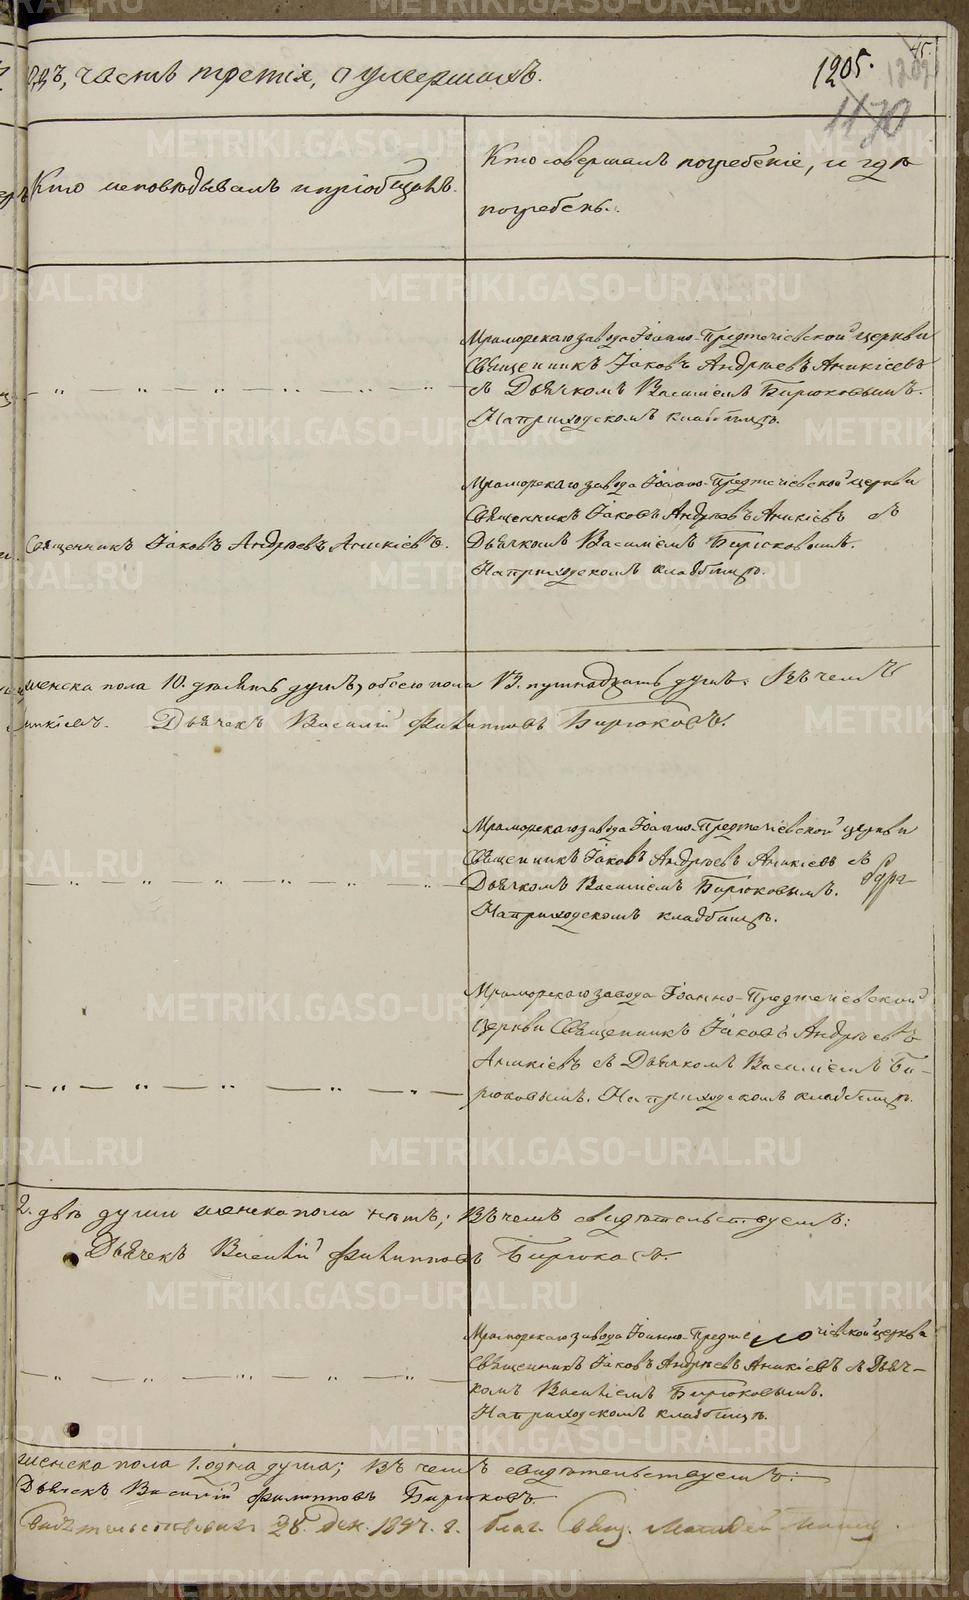 одъ, часть третія, о умершихъ.
1205.
45.
1170
Кто исповѣдывалъ и пріобщалъ.
Кто совершалъ погребеніе, и гдѣ
погребенъ.
Мраморскаго завода Іоанно-Предтечіевской церкви
Священникъ Іаковъ Андреевъ Аникіевъ
съ Дьячкомъ Василіемъ Бирюковымъ.
На приходскомъ кладбищѣ.
Мраморскаго завода Іоанно-Предтечіевской церкви
Священникъ Іаковъ Андреевъ Аникіевъ съ
Священникъ Іаковъ Андреевъ Аникіевъ.
Дьячкомъ Василіемъ Бирюковымъ.
На приходскомъ кладбищѣ.
женска пола 10. девять душъ, обоего пола В. пятнадцать душъ. Въ чемъ
никіевъ. Дьячекъ Василій Филипповъ Бирюковъ.
Мраморскаго завода Іоанно-Предтечіевской церкви
Священникъ Іаковъ Андреевъ Аникіевъ съ
Дьячкомъ Василіемъ Бирюковымъ.
На приходскомъ кладбищѣ.
Мраморскаго завода Іоанно-Предтечіевской
церкви Священникъ Іаковъ Андреевъ
Аникіевъ съ Дьячкомъ Василіемъ Би-
рюковымъ. На приходскомъ кладбищѣ.
2. двѣ души женска пола нѣтъ; Въ чемъ свидѣтельствуемъ:
Дьячекъ Василій Филипповъ Бирюковъ.
Мраморскаго завода Іоанно-Предтечіевской церкви
Священникъ Іаковъ Андреевъ Аникіевъ съ Дьяч-
комъ Василіемъ Бирюковымъ.
На приходскомъ кладбищѣ.
женска пола 1. одна душа; Въ чемъ свидѣтельствуемъ:
Дьячекъ Василій Филипповъ Бирюковъ.
28. дек. 1847. г. благ. Свящ.
METRIKI.GASO-URAL.RU